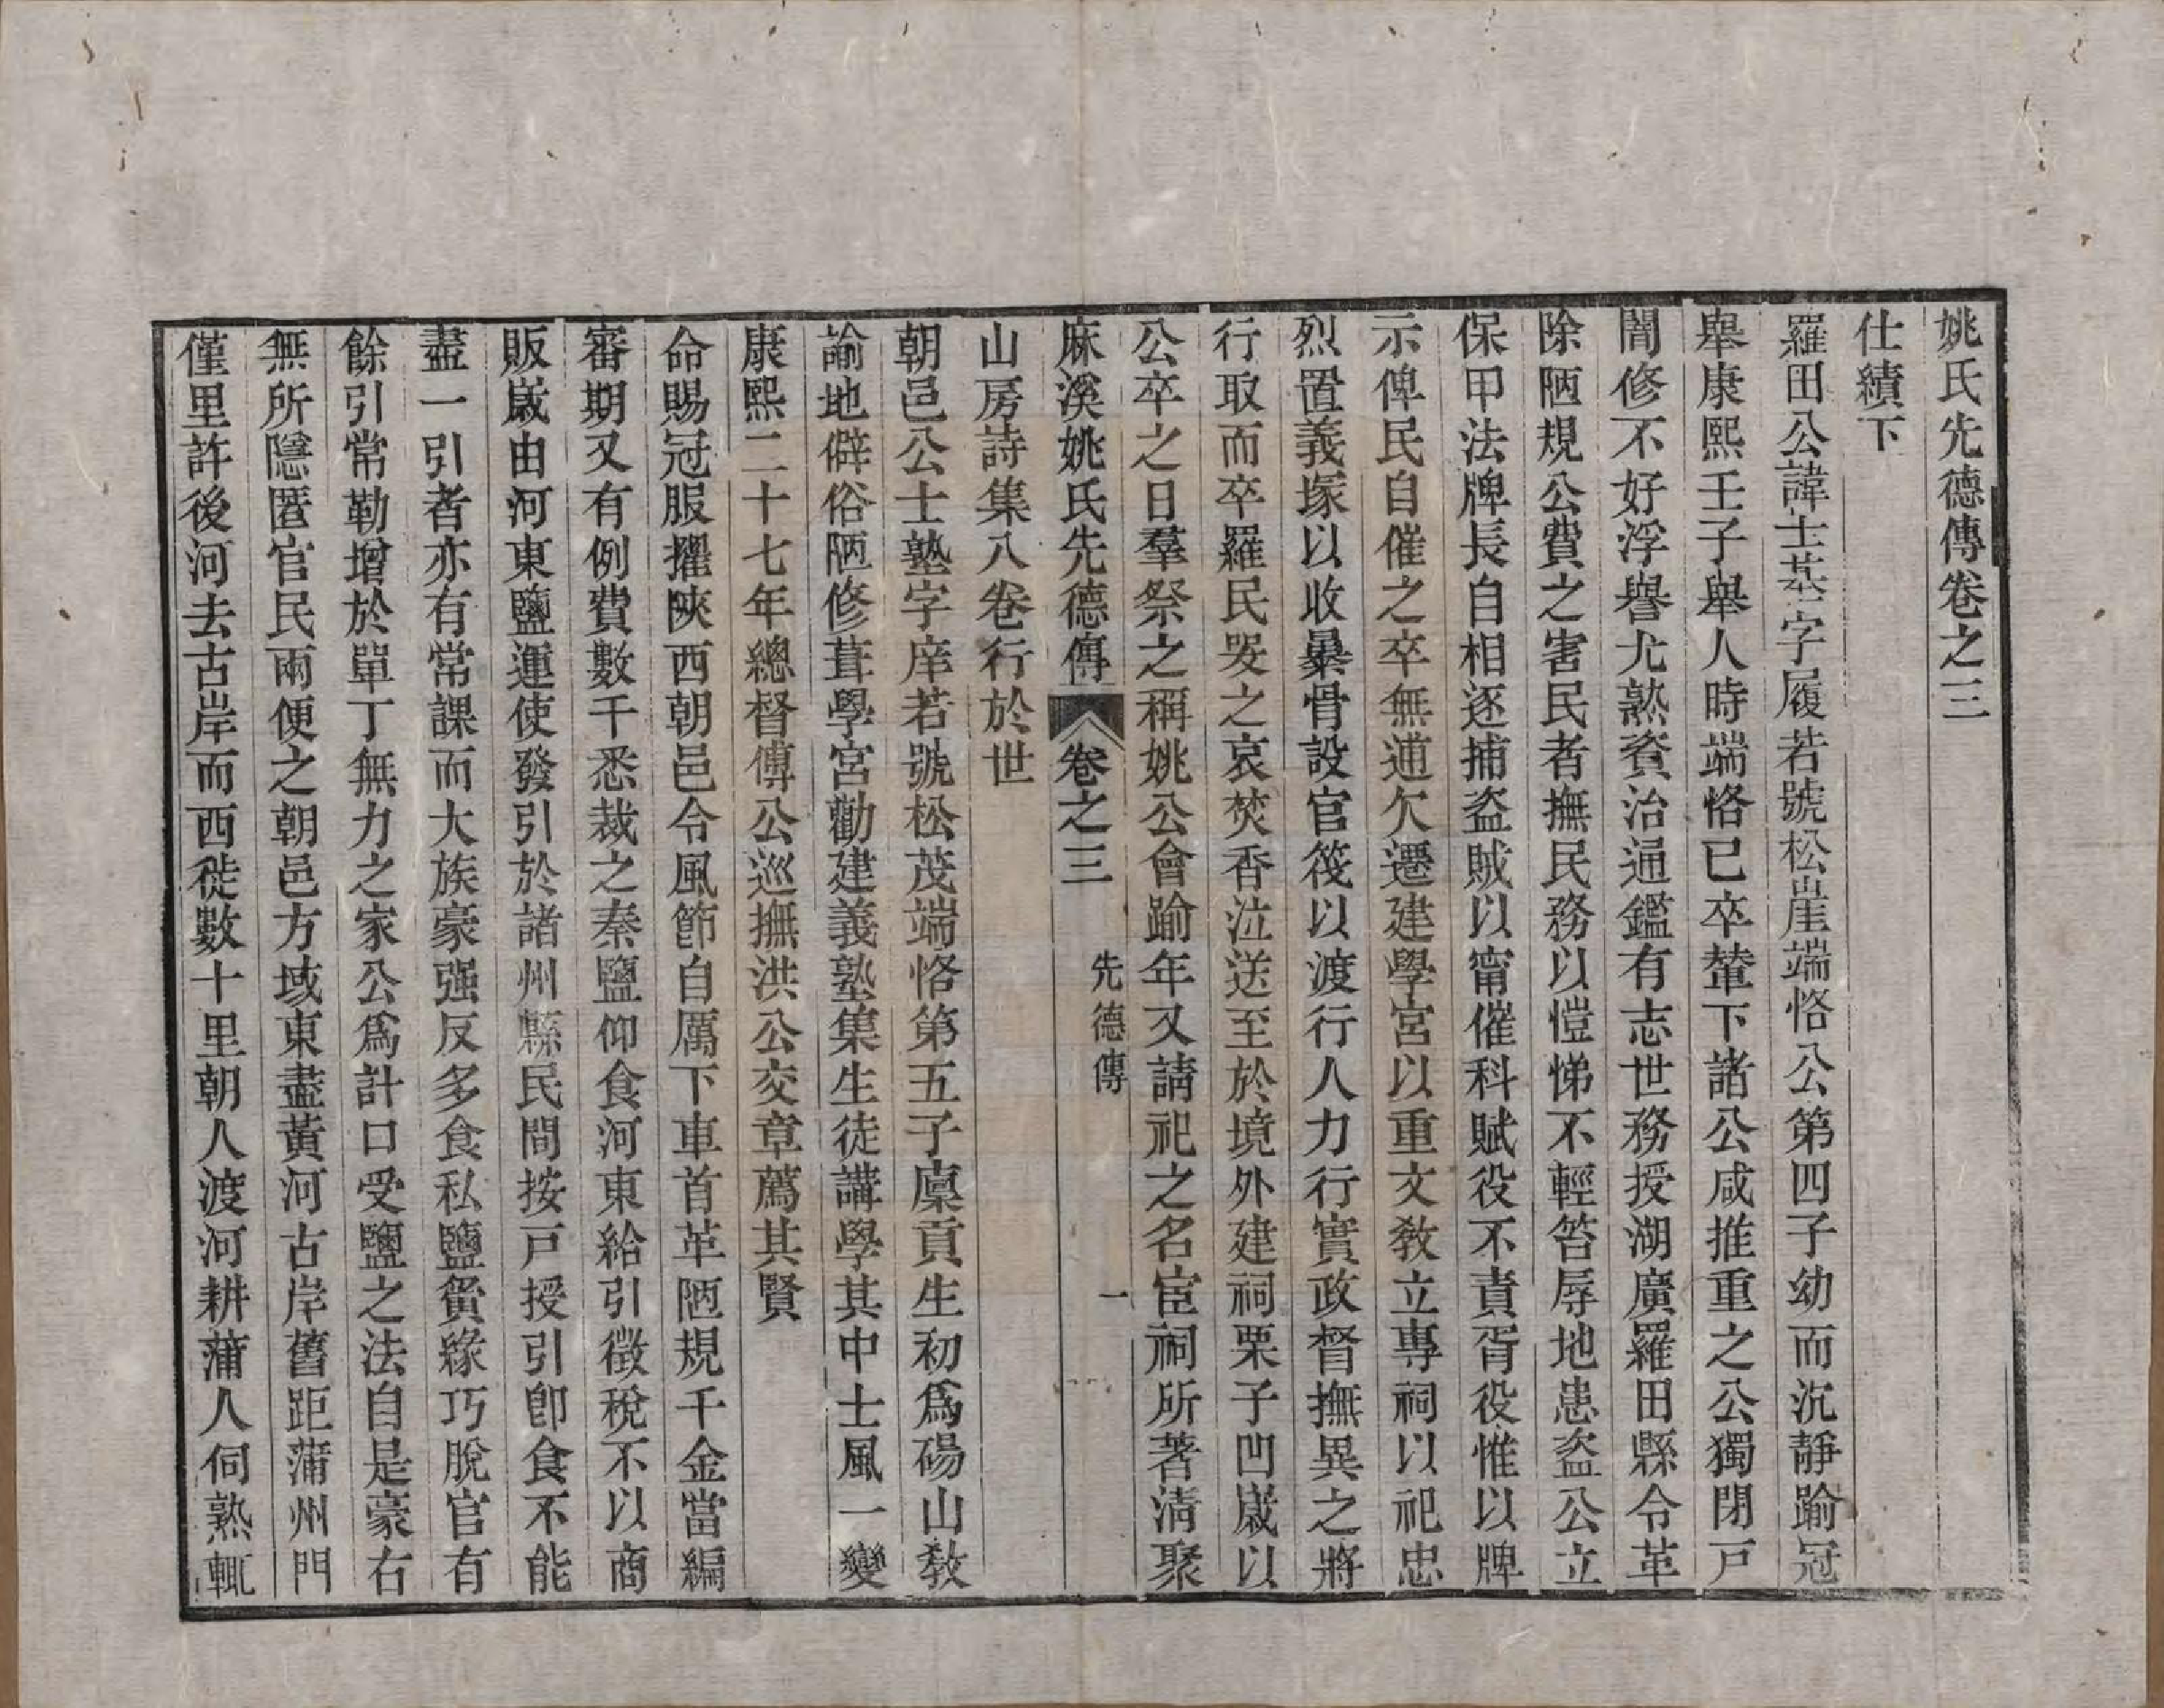 姚氏先德傳卷之三
仕績下
羅田公諱士基字履若號松崖端恪公第四子幼而沉靜踰冠
舉康熙壬子舉人時端恪已卒輦下諸公咸推重之公獨閉戸
闇修不好浮譽尤熟資治通鑑有志世務授湖廣羅田縣令革
除陋規公費之害民者撫民務以愷悌不輕笞辱地患盗公立
保甲法牌長自相逐捕盗賊以甯催科賦役不責胥役惟以牌
示俾民自催之卒無逋欠遷建學宮以重文敎立專祠以祀忠
烈置義塚以收暴骨設官筏以渡行人力行實政督撫異之將
行取而卒羅民哭之哀焚香泣送至於境外建祠栗子凹嵗以
公卒之日羣祭之稱姚公會踰年又請祀之名宦祠所著淸聚
麻溪姚氏先德傳 卷之三 先德傳 一
山房詩集八卷行於世
朝邑公士塾字庠若號松茂端恪第五子廩貢生初爲碭山敎
諭地僻俗陋修葺學宮勸建義塾集生徒講學其中士風一變
康熙二十七年總督傅公巡撫洪公交章薦其賢
命賜冠服擢陜西朝邑令風節自厲下車首革陋規千金當編
審期又有例費數千悉裁之秦鹽仰食河東給引徵稅不以商
販嵗由河東鹽運使發引於諸州縣民間按戸授引卽食不能
盡一引者亦有常課而大族豪强反多食私鹽夤緣巧脫官有
餘引常勒增於單丁無力之家公爲計口受鹽之法自是豪右
無所隱匿官民兩便之朝邑方域東盡黃河古岸舊距蒲州門
僅里許後河去古岸而西徙數十里朝人渡河耕蒲人伺熟輒